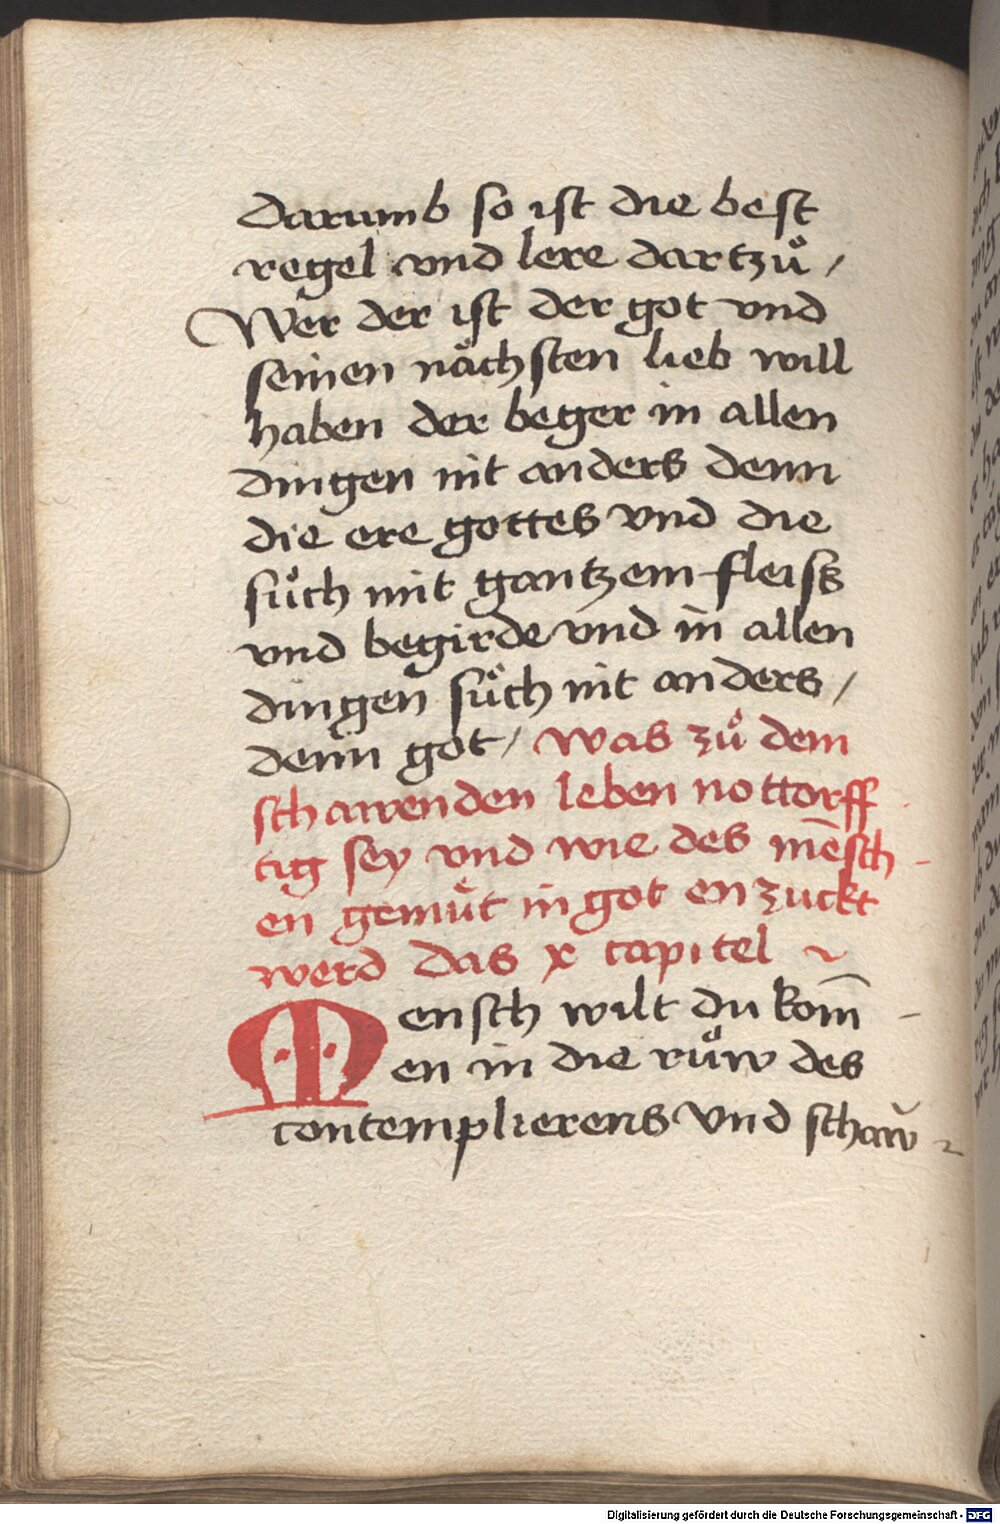 darumb so ist die best
regel vnd lere dartzuͦ /
Wer der ist der got vnd
seinen nächsten lieb will
haben der beger in allen
dingen nit anders denn
die ere gottes vnd die
suͦch mit gantzem fleiss
vnd begirde vnd in allen
dingen suͦch nit anders /
denn got / was zuͦ dem
schawenden leben nottorff
tig sey vnd wie des mēsch
en gemuͤt in got enzuckt
werd das x capitel ~
Mensch wilt du kom̄
en in die ruͦw des
contemplierens vnd schaw̄
Digitalisierung gefördert durch die Deutsche Forschungsgemeinschaft - DFG